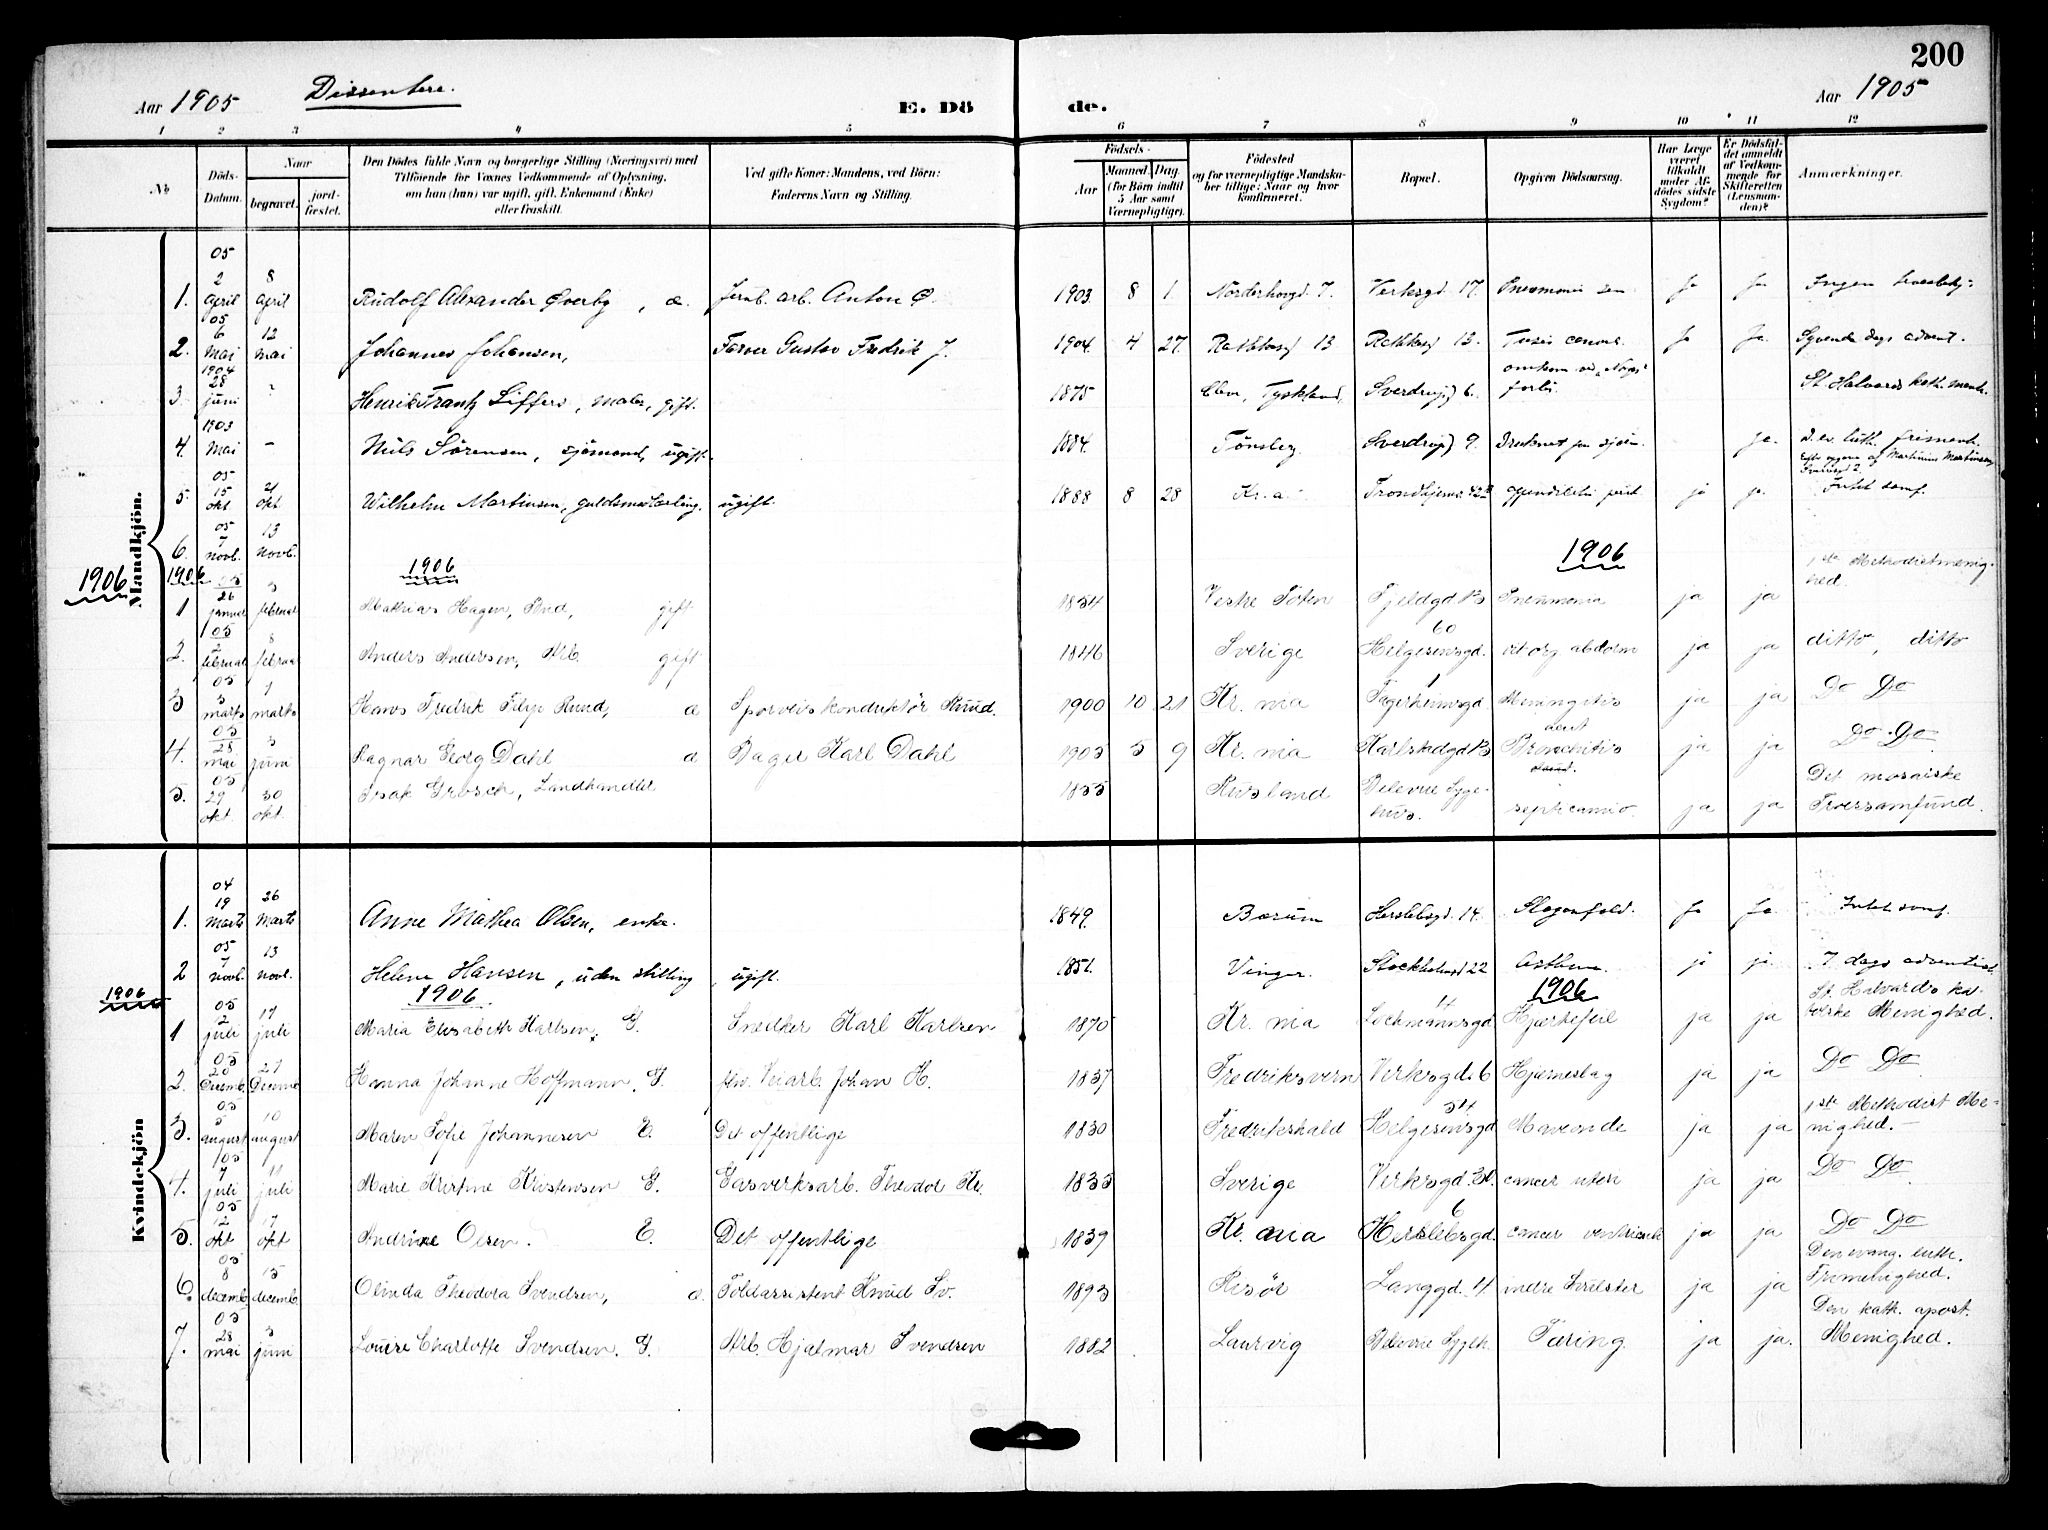 200
Aar 1905 Dissentere. E. Dö de. Aar 1905
1 2 3 4 5 6 7 8 9 10 11 12
No
Döds-Datum.
Naar
begravet.
jordfæstet.
Den Dödes fulde Navn og borgerlige Stilling (Næringsvei) med
Tilföiende for Voxnes Vedkommende af Oplysning,
om han (hun) var ugift, gift, Enkemand (Enke)
eller fraskilt.
Ved gifte Koner: Mandens, ved Börn:
Faderens Navn og Stilling.
Födsels-
Aar
Maaned. Dag.
(for Börn indtil
5 Aar samt
Værnepligtige).
Födested
og for værnepligtige Mandska-
ber tillige: Naar og hvor
konfirmeret.
Bopæl.
Opgiven Dödsaarsag.
Har Læge
været
tilkaldt
under Af-
dödes sidste
Sygdom?
Er Dödsfal-
det anmeldt
af Vedkom-
mende for
Skifteretten
(Lensman-
den)?
Anmærkninger.
Mandkjön.
1. 05 2 April 8 April Rudolf Alexander Øverby, a. Jernb. arb. Anton Ø. 1903 8 1. Norderhovgd. 7. Verksgd. 17. Ja Ja Ingen
2. 05 6 Mai 12 Mai Johannes Johansen, Farver Gustav Fredrik J. 1904. 4 27. 13 13. Ja Ja. Syvende dags advent.
3. 1904 28 juni ? Henrik Frantz Siffers, maler, gift. 1875 Tyskland, Sverdrupgd 6. omkom ved "Norges" forlis. St. Halvards kath. menh.
4. 1903 Mai - Nils Sørensen, sjömand, ugift. 1884. Tønsberg. Sverdrupgd 9. Druknet ja. D. ev. luth. frimenh.
Efter opgave af Martinius Martinsen
5. 05 15 okt 21 okt Wilhelm Martinsen, guldsmedlærling, ugift. 1888 8 28 Kr.a. ja ja. Intet samf.
6. 05 7 novb. 13 novb.
1906 1906 1906 1906
1 05 26 januar 3 februar Mathias Hagen, gift 1854 Vestre Toten Fjeldgd. Pneumonia ja ja 1ste Methodistmenig-
hed.
2. 05 2 februar 8 februar Anders Andersen, Arb. gift 1846 Sverige Helgesensgd. 60 vit org abdom ja ja ditto, ditto
3 05 3 marts 7 marts Hans Fredrik Filip Ruud, a Sporveiskonduktør Ruud. 1900 10 21 Kr.nia Fagerheimsgd. 1 Meningitis ja ja Do Do
4. 05 28 mai 3 juni Ragnar Georg Dahl a Bager Karl Dahl 1905 5 9 Kr.nia Karlstadgd acut Bronchitis ja ja Do Do
5. 05 29 okt 30 okt. Isak Grosch, Landhandler 1855 Rusland Belevue Syge-
hus. septicæmia ja ja Det mosaiske
Troessamfund.
Kvindekjön
1. 04 19 Marts 26 Marts Anne Mathea Olsen, enke. 1849. Bærum Herslebsgd. 14. Slaganfald. Ja Ja. Intet samf.
2 05 7 novb. 13 novb. Helene Hansen, uden stilling, ugift. 1851. Vinger. 22 Asthma. ja ja. 7 dags adventist.
1906 1906 1906
1 05 2 juli 17 juli Maria Elisabeth Karlsen, G. Snedker Karl Karlsen 1870 Kr.nia Lochmannsgd. Hjertefeil ja ja St. Halvards ka-
tolske Menighed.
2. 05 20 Decemb. 27 Decemb Hanna Johanne Hoffmann, G. Veiarb. Johan H. 1837 Fredriksvern Verksgd. 6 Hjerneslag ja ja Do Do
3. 05 5 august 10 august Maren Sofie Johannesen E. Det offentlige 1830 Fredrikshald Helgesensgd 54 Maveonde ja ja 1ste Methodist Me-
nighed.
4. 05 7 juli 11 juli Marie Kristine Kristensen G. Gasverksarb. Theodor Kr. 1835 Sverige Verksgd. 30. cancer uteri ja ja Do Do
5. 05 12 okt 17 okt Andrine Olsen. E. Det offentlige 1839 Kr.ania Herslebsgd. 6 cancer ventriculi ja ja Do Do
6. 05 8 decemb. 15 decemb. Olinda Theodora Svendsen, a. Toldassistent Knud Sv. 1893 Risør Langgd. 4 indre Svulster ja ja Den evang. luth.
Frimenighed.
7. 05 28 mai 3 juni Louise Charlotte Svendsen. G. Arb. Hjalmar Svendsen 1882 Laurvig Belevue Sygeh. Tæring ja ja. Den kath. apost.
Menighed.